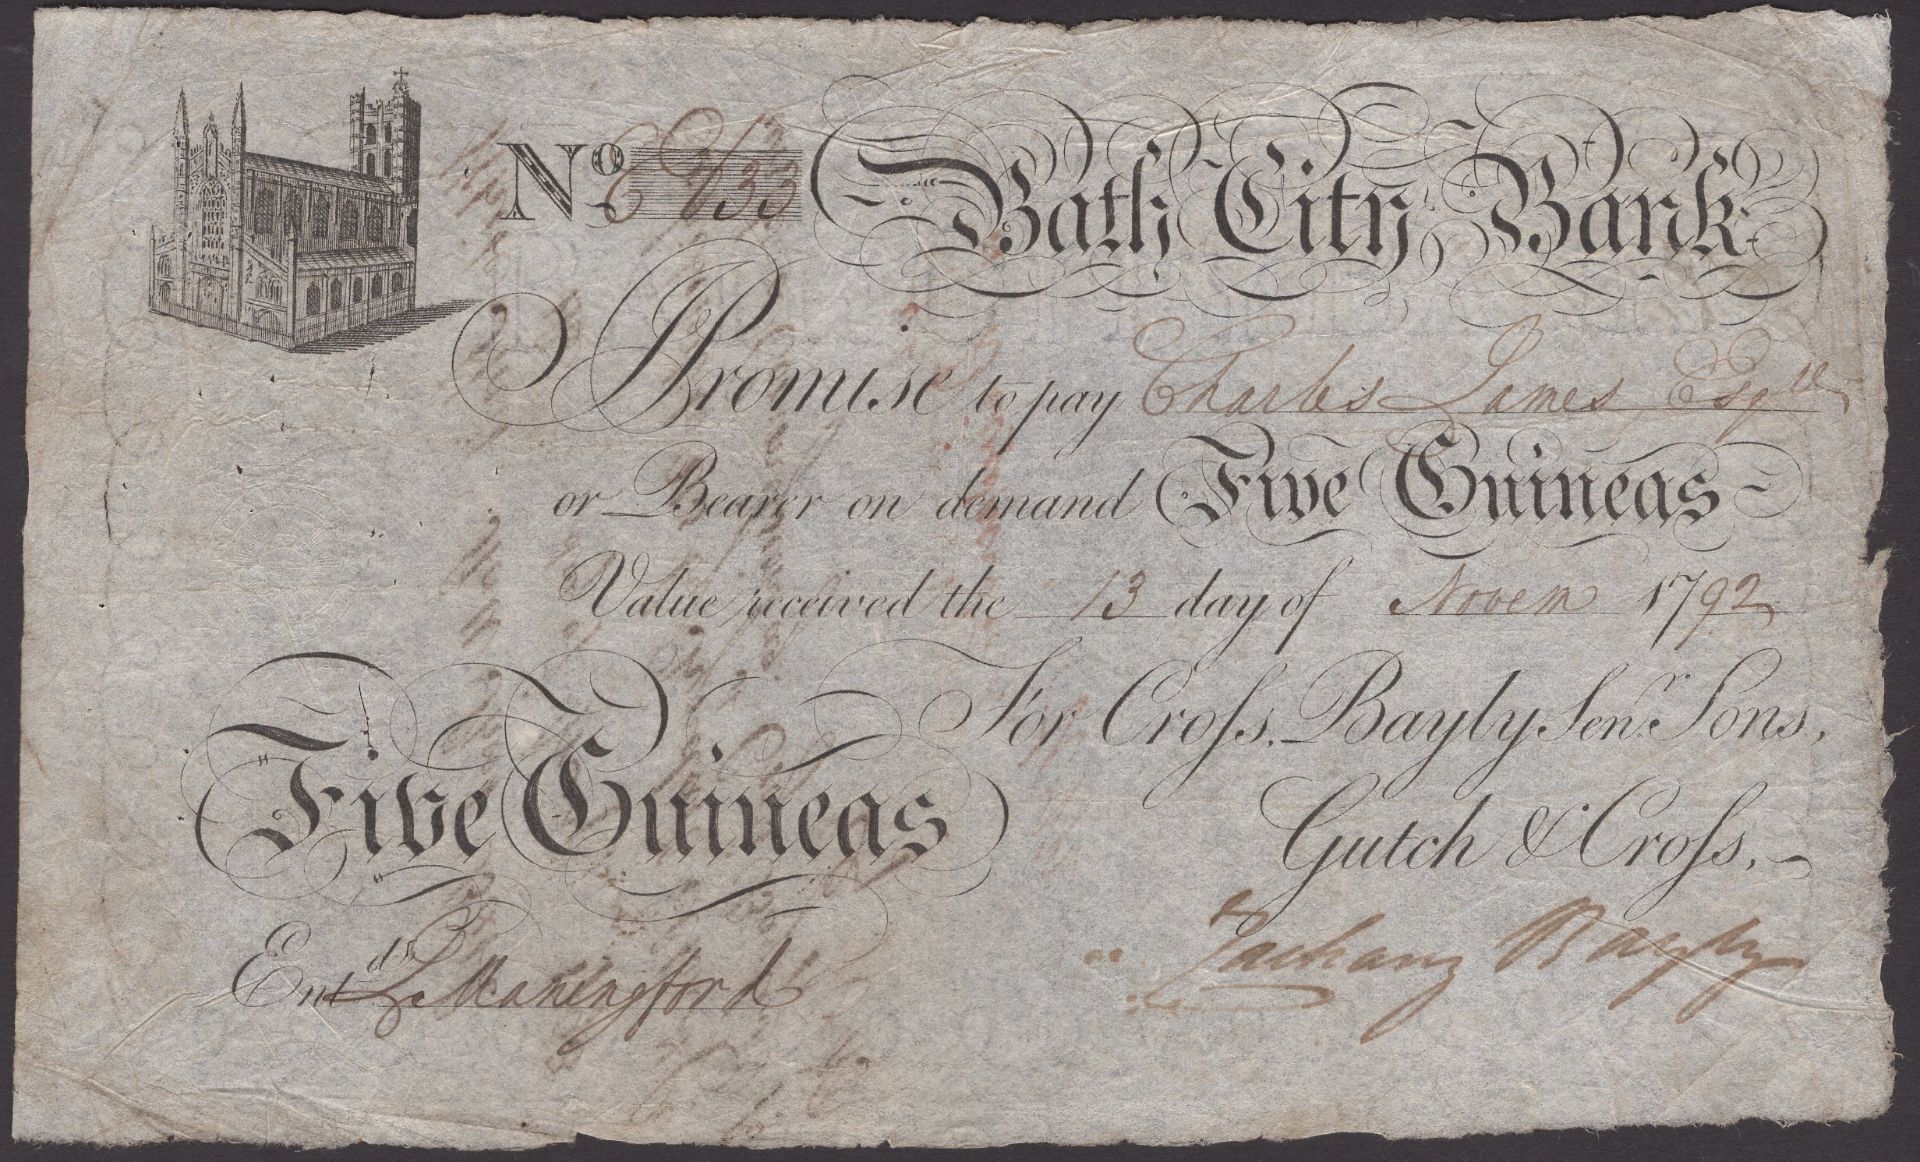 No. Bath City Bank
Promise to pay Charles James Esqre
or Bearer on demand Five Guineas
Value received the 13 day of Novem 1792
For Croſs, Bayly Senr. Sons,
Five Guineas
Gutch & Croſs,
Entd. Maningford
Zachary Bayly